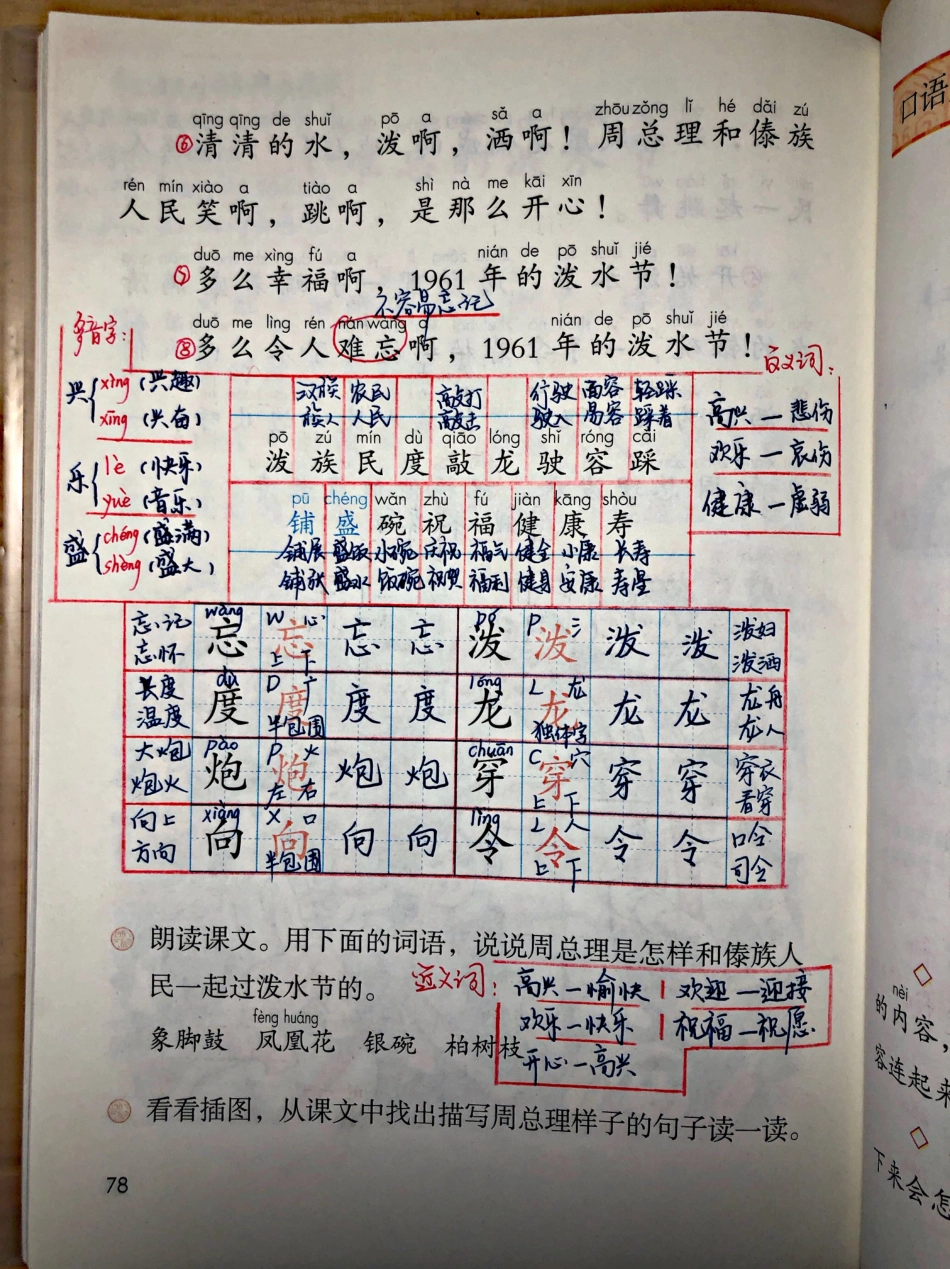 口语
qīng qīng de shuǐ pō a sǎ a zhōu zǒng lǐ hé dǎi zú
⑥清清的水，泼啊，洒啊！周总理和傣族
rén mín xiào a tiào a shì nà me kāi xīn
人民笑啊，跳啊，是那么开心！
duō me xìng fú a nián de pō shuǐ jié
⑦多么幸福啊，1961年的泼水节！
不容易忘记
duō me lìng rén nán wàng a nián de pō shuǐ jié
⑧多么令人难忘啊，1961年的泼水节！
多音字：
兴 xìng（兴趣）
xīng（兴奋）
乐 lè（快乐）
yuè（音乐）
盛 chéng（盛满）
shèng（盛大）
汉族 农民 敲打 行驶 面容 轻踩
族人 人民 敲击 驶入 易容 踩着
pō zú mín dù qiāo lóng shǐ róng cǎi
泼 族 民 度 敲 龙 驶 容 踩
pū chéng wǎn zhù fú jiàn kāng shòu
铺 盛 碗 祝 福 健 康 寿
铺展 盛饭 水碗 庆祝 福气 健全 小康 长寿
铺张 盛水 饭碗 祝贺 福利 健身 安康 寿星
反义词：
高兴—悲伤
欢乐—哀伤
健康—虚弱
wàng W 心 pō P 氵
忘记 忘 忘 忘 忘 泼 泼 泼 泼 泼妇
忘怀 上 下 泼洒
dù D 广 lóng L 龙
长度 度 度 度 度 龙 龙 龙 龙 龙舟
温度 半包围 独体字 龙人
pào P 火 chuān C 穴
大炮 炮 炮 炮 炮 穿 穿 穿 穿 穿衣
炮火 左 右 上 下 看穿
xiàng X 口 lìng L 人
向上 向 向 向 向 令 令 令 令 口令
方向 半包围 上 下 司令
朗读课文。用下面的词语，说说周总理是怎样和傣族人
民一起过泼水节的。
近义词：
高兴—愉快 欢迎—迎接
欢乐—快乐 祝福—祝愿
开心—高兴
fèng huáng
象脚鼓 凤凰花 银碗 柏树枝
看看插图，从课文中找出描写周总理样子的句子读一读。
78
nèi
的内容，
容连起来
下来会怎